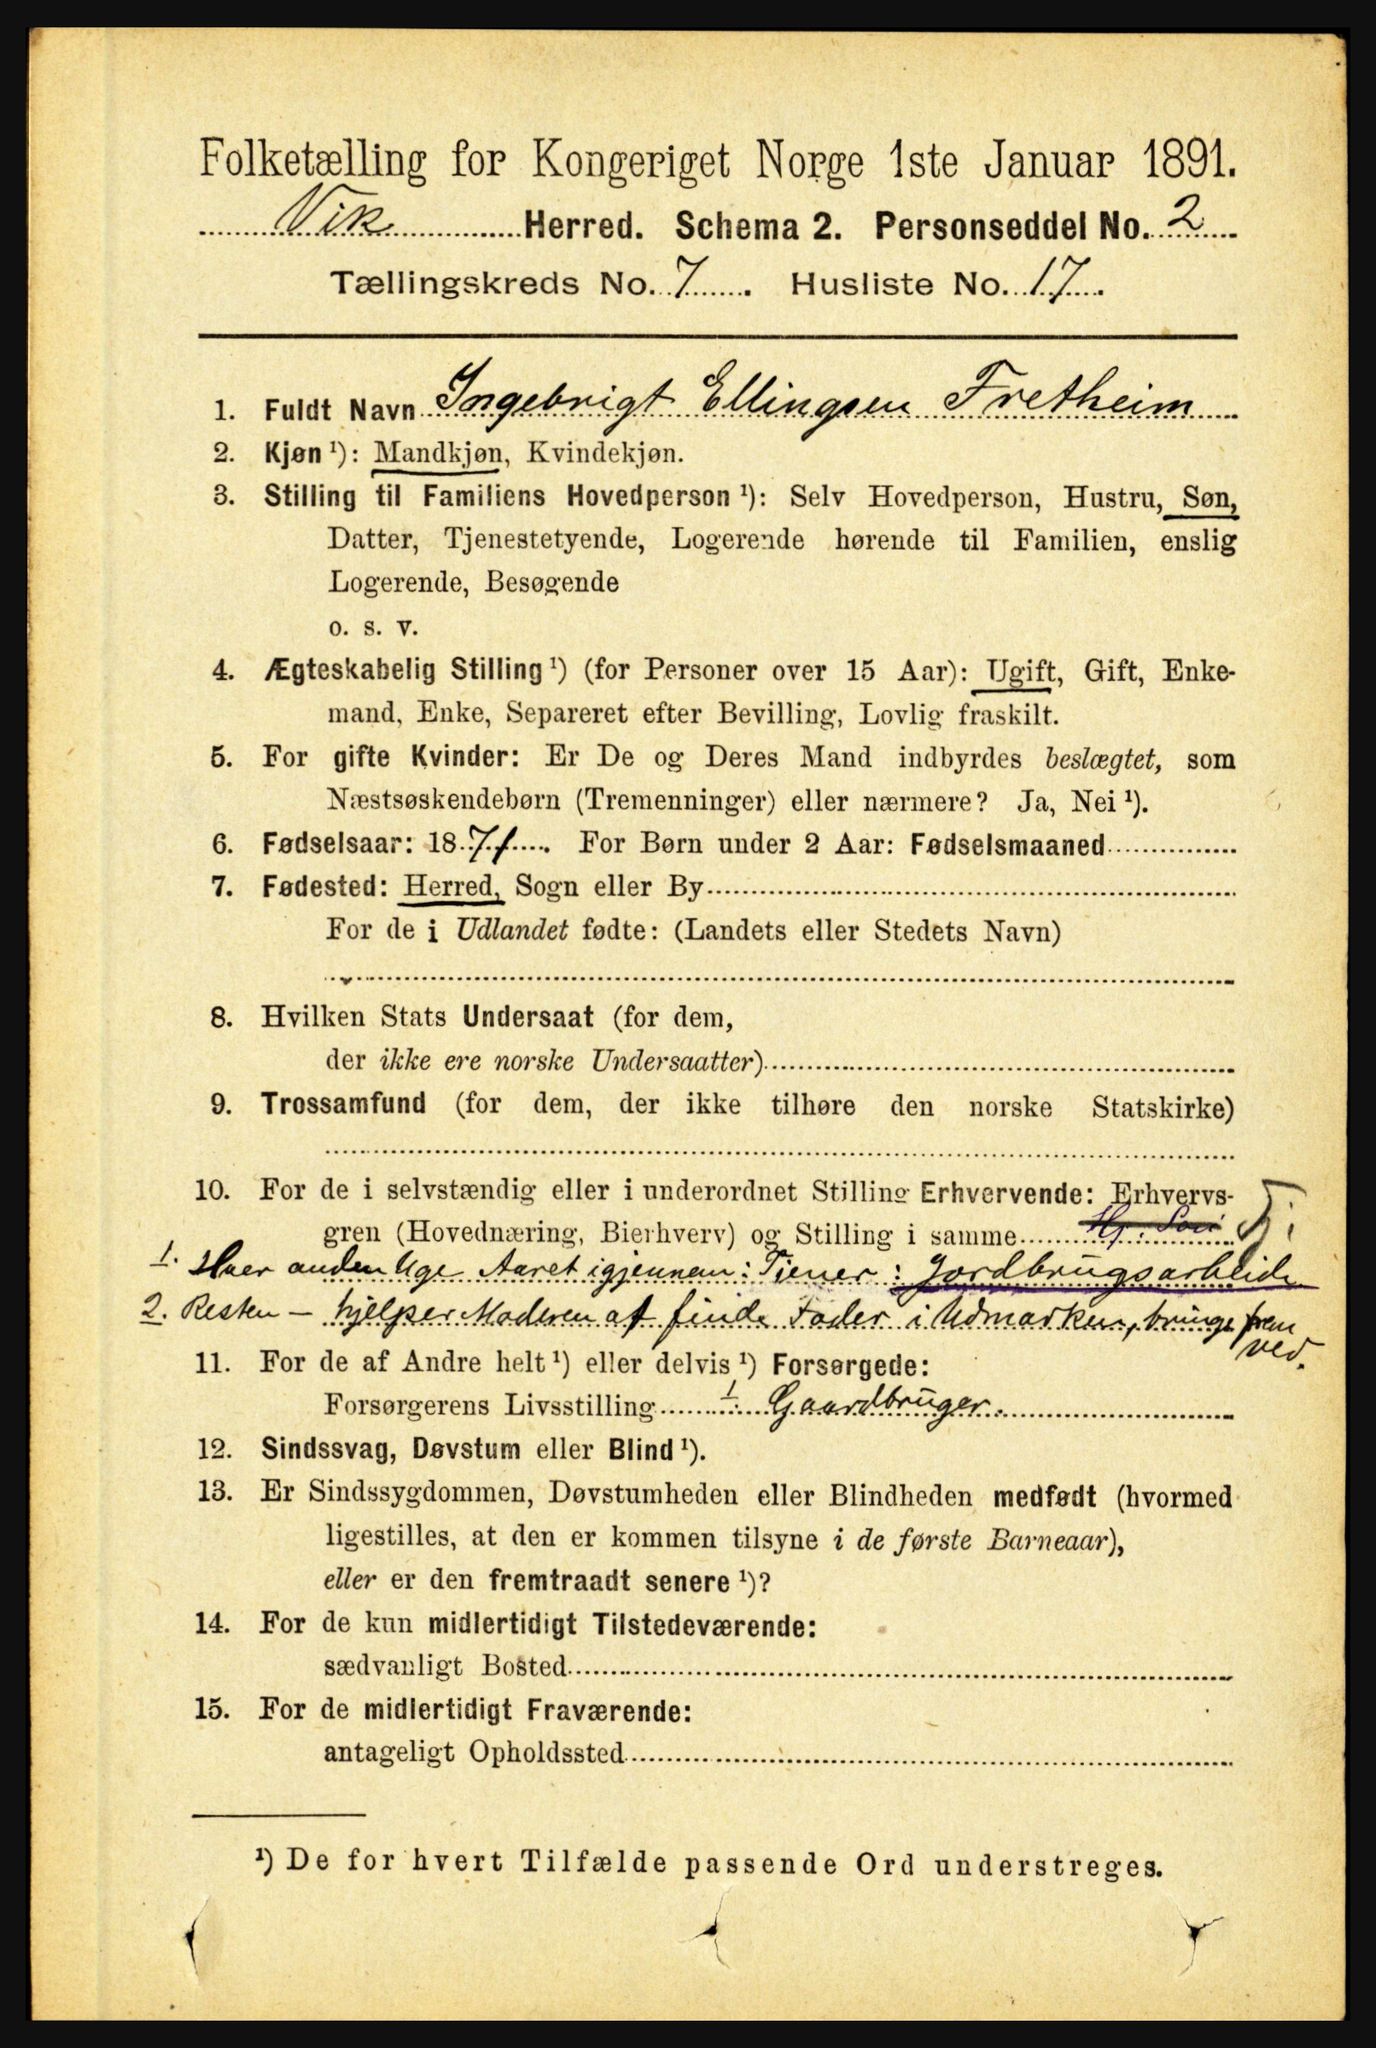 Folketælling for Kongeriget Norge 1ste Januar 1891.
Vik Herred. Schema 2. Personseddel No. 2
Tællingskreds No. 7. Husliste No. 17.
1. Fuldt Navn Ingebrigt Ellingsen Fretheim
2. Kjøn ¹): Mandkjøn, Kvindekjøn.
3. Stilling til Familiens Hovedperson ¹): Selv Hovedperson, Hustru, Søn,
Datter, Tjenestetyende, Logerende hørende til Familien, enslig
Logerende, Besøgende
o. s. v.
4. Ægteskabelig Stilling ¹) (for Personer over 15 Aar): Ugift, Gift, Enke-
mand, Enke, Separeret efter Bevilling, Lovlig fraskilt.
5. For gifte Kvinder: Er De og Deres Mand indbyrdes beslægtet, som
Næstsøskendebørn (Tremenninger) eller nærmere? Ja, Nei ¹).
6. Fødselsaar: 1871. For Børn under 2 Aar: Fødselsmaaned
7. Fødested: Herred, Sogn eller By
For de i Udlandet fødte: (Landets eller Stedets Navn)
8. Hvilken Stats Undersaat (for dem,
der ikke ere norske Undersaatter)
9. Trossamfund (for dem, der ikke tilhøre den norske Statskirke)
10. For de i selvstændig eller i underordnet Stilling Erhvervende: Erhvervs-
gren (Hovednæring, Bierhverv) og Stilling i samme Hj. Søn Tj.
1. Hver anden Uge Aaret igjennem: Tjener: Jordbrugsarbeide
2. Resten – hjelper Moderen at finde Foder i Udmarken, bringe frem
ved.
11. For de af Andre helt ¹) eller delvis ¹) Forsørgede:
Forsørgerens Livsstilling 1. Gaardbruger.
12. Sindssvag, Døvstum eller Blind ¹).
13. Er Sindssygdommen, Døvstumheden eller Blindheden medfødt (hvormed
ligestilles, at den er kommen tilsyne i de første Barneaar),
eller er den fremtraadt senere ¹)?
14. For de kun midlertidigt Tilstedeværende:
sædvanligt Bosted
15. For de midlertidigt Fraværende:
antageligt Opholdssted
¹) De for hvert Tilfælde passende Ord understreges.